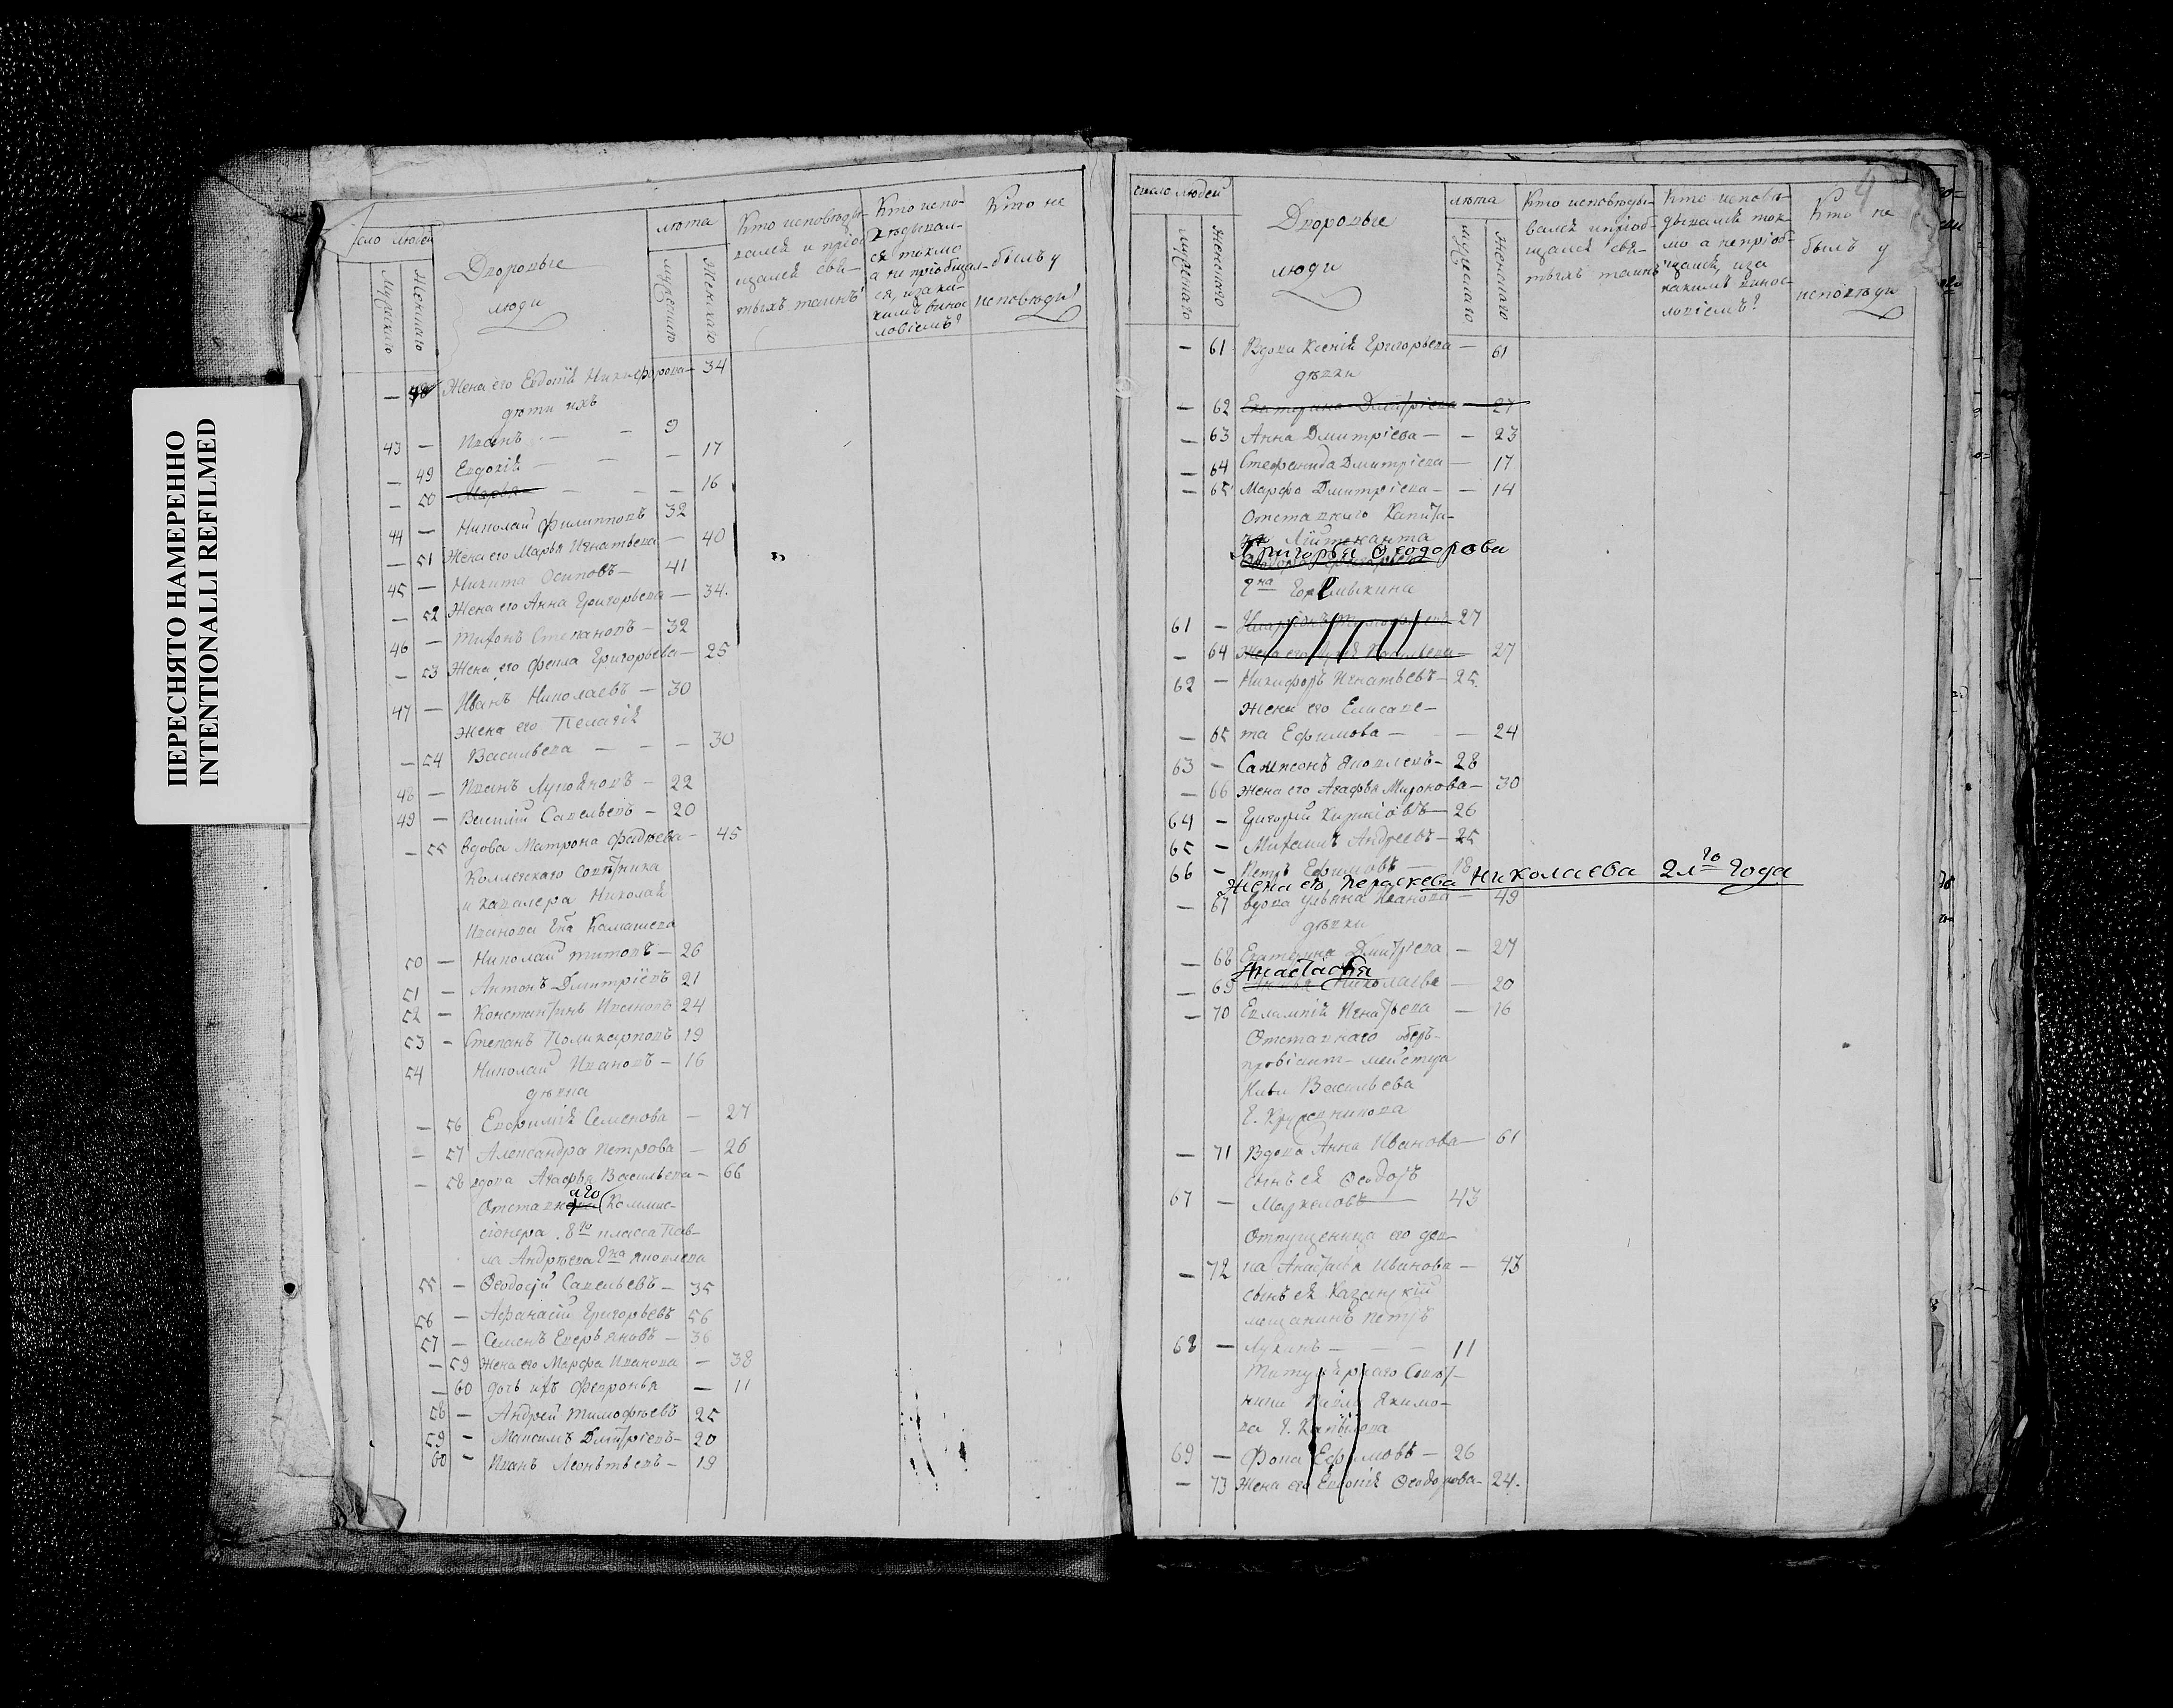 ПЕРЕСНЯТО НАМЕРЕННО
INTENTIONALLI REFILMED
число людей
мужескаго
женскаго
Дворовые
люди
лѣта
мужескаго
женскаго
Кто исповѣды-
вался и прiоб
щался свя-
тыхъ таинъ
Кто испо-
вѣдывал-
ся токмо
а не прiобщал-
ся, и за ка-
кимъ винос
ловiемъ?
Кто не
былъ у
исповѣди
— 48 Жена его Евдокiя Никифорова — 34
дѣти ихъ
43 — Иванъ — — 9
— 49 Евдокiя — — — 17
— 50 Марья — — — 16
44 — Николай Филипповъ 32
— 51 Жена его Марья Игнатьева — 40
45 — Никита Осиповъ — 41
— 52 Жена его Анна Григорьева — 34.
46 — Тихонъ Степановъ — 32
— 53 Жена его Фекла Григорьева — 25
47 — Иванъ Николаевъ — 30
Жена его Пелагiя
— 54 Васильева — — — 30
48 — Иванъ Лукояновъ — 22
49 — Василiй Савельевъ — 20
— 55 вдова Матрона Фадѣева — 45
Коллежскаго Совѣтника
и кавалера Николая
Иванова Гна Камашева
50 — Николай Титовъ — 26
51 — Антонъ Дмитрiевъ 21
52 — Константинъ Ивановъ 24
53 — Степанъ Поликарповъ 19
54 Николай Ивановъ — 16
дѣвка
— 56 Евфимiя Семенова — 27
— 57 Александра Петрова — 26
— 58 вдова Агафья Васильева — 66
аго
Отставнаго Коммис-
сiонера 8го класса Пав-
ла Андрѣева Гна Яковлева
55 — Ѳеодосiй Савельевъ — 35
56 — Афанасiй Григорьевъ 56
57 — Семенъ Аверьяновъ — 36
— 59 Жена его Марфа Иванова — 38
— 60 дочь ихъ Февронья — 11
58 — Андрей Тимофѣевъ 25
59 — Максимъ Дмитрiевъ — 20
60 — Иванъ Леонтьевъ — 19
4
число людей
мужескаго
женскаго
Дворовые
люди
лѣта
мужескаго
женскаго
Кто исповѣды-
вался и прiоб-
щался свя-
тыхъ таинъ
Кто исповѣ-
дывался ток
мо а не прiоб-
щался, и за
какимъ винос
ловiемъ?
Кто не
былъ у
исповѣди
— 61 Вдова Ксенiя Григорьева — 61
дѣвки
— 62 Екатерина Дмитрiева — 27
— 63 Анна Дмитрiева — — 23
— 64 Стефанида Дмитрiева — 17
— 65 Марфа Дмитрiева — — 14
Отставнаго Капита-
на Лейтенанта
Григорья Ѳеодорова
Гна Горемыкина
61 — 27
— 64 Жена его Васильева — 27
62 — Никифоръ Игнатьевъ — 25
жена его Елисаве-
— 65 та Ефимова — — 24
63 — Сампсонъ Яковлевъ — 28
— 66 жена его Агафья Миронова — 30
64 — Григорiй Кириловъ — 26
65 — Михаилъ Андреевъ — 25
66 — Петръ Ефимовъ — 18
Жена его, Параскева Николаева 21го года
— 67 вдова Ульяна Иванова — 49
дѣвки
— 68 Екатерина Дмитрiева — 27
Анастасья
— 69 Николаева — 20
— 70 Евлампiя Игнатьева — 16
Отставнаго оберъ-
провiант-мейстера
Васильева
Г. Крупеникова
— 71 Вдова Анна Иванова — 61
сынъ ея Ѳеодоръ
67 — Маркеловъ — 43
Отпущеница его дев-
— 72 ка Анастасья Иванова — 43
сынъ ея Казанскiй
мещанинъ Петръ
68 — Лукинъ — — — 11
Титулярнаго Совѣт-
ника Павла Якимо-
ва Г.
69 — Фока Ефимовъ — 26
— 73 Жена его Евдокiя Ѳеодорова — 24.